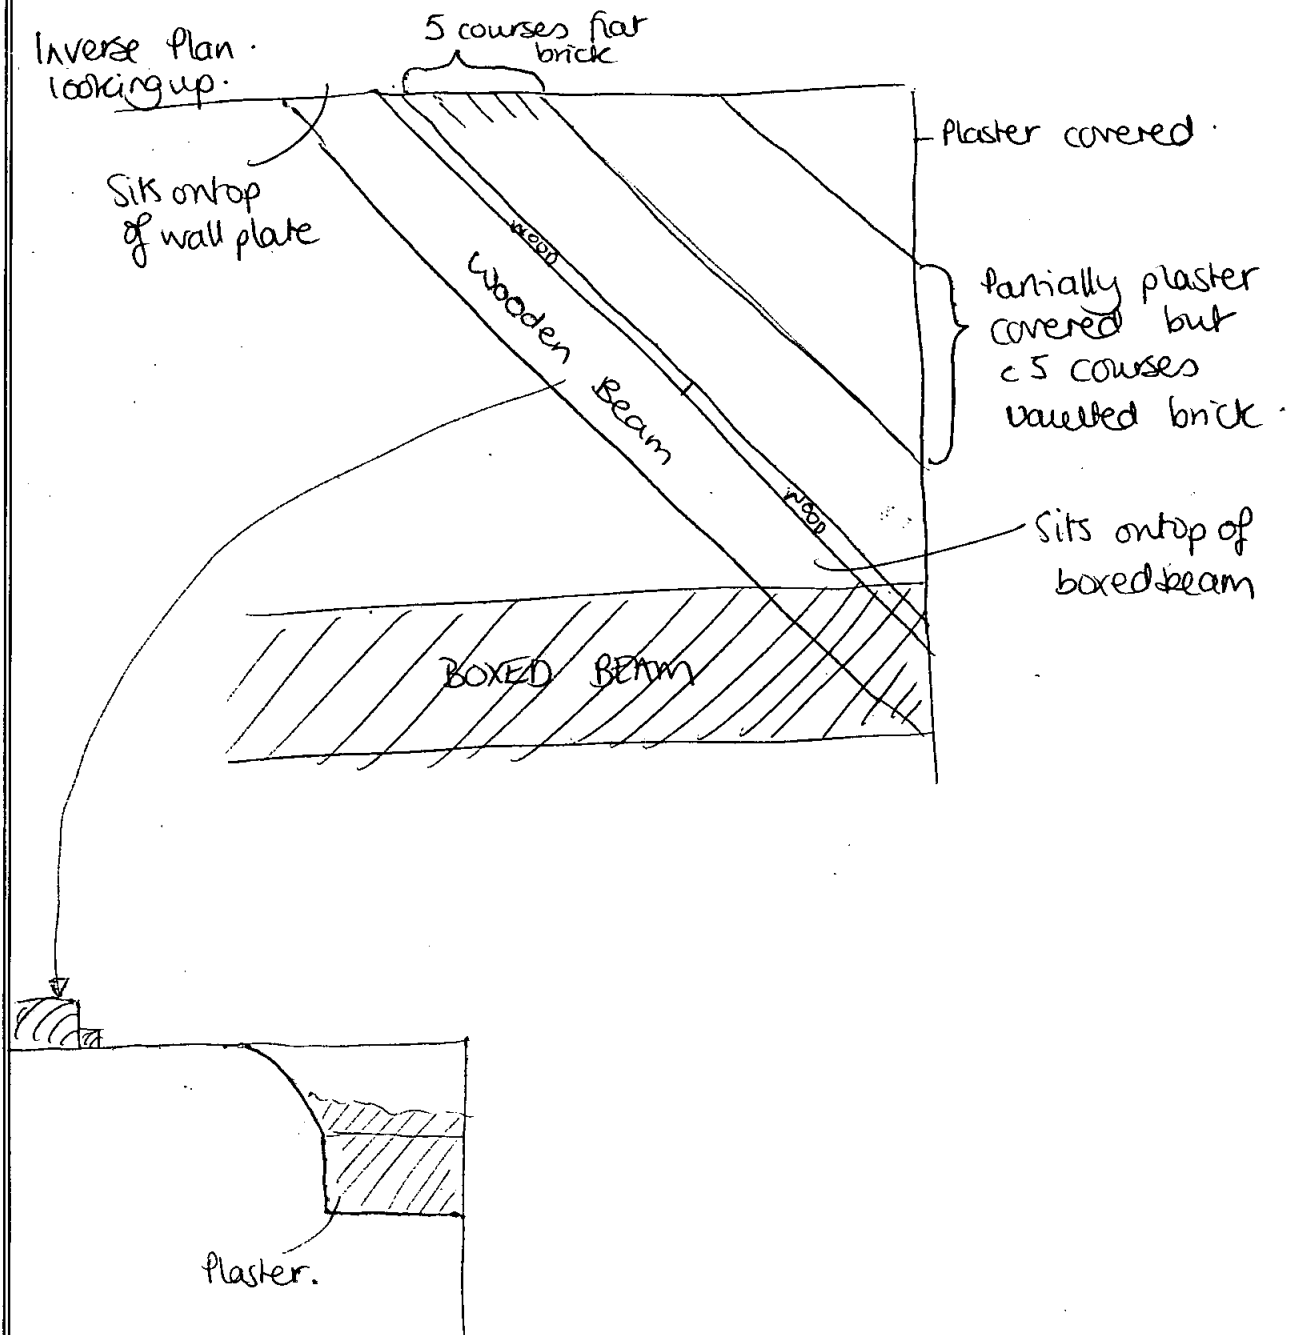 Inverse Plan.
looking up.
5 courses flat
brick
Plaster covered.
Sits ontop
of wall plate
WOOD
Wooden Beam
Partially plaster
covered but
c 5 courses
vaulted brick.
WOOD
Sits ontop of
boxed beam
BOXED BEAM
Plaster.